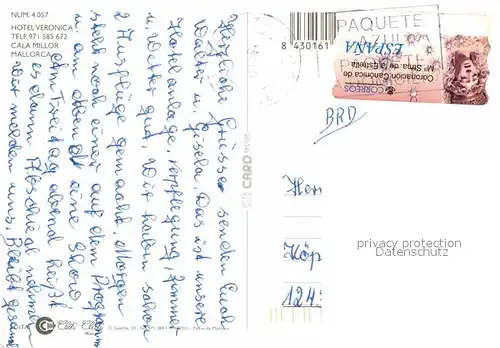 NUM. 4.057
HOTEL VERONICA
TELF. 971 585 672
CALA MILLOR
MALLORCA
Herzliche Grüsse senden Euch
Walter u. Gisela. Das ist unsere
Hotelanlage, Verpflegung, Zimmer
u. Wetter gut. Wir haben schon
2 Ausflüge gemacht. Morgen
steht noch einer auf dem Programm
u. am Abend eine Show
Am Freitag abend heißt
es dann Abschied nehmen
Wir melden uns. Bleibt gesund
8 430161
PAQUETE
AZUL
CORREOS
Coronación Canónica de
Mª Stma. de la Estrella
ESPAÑA
BRD
Herr
Köp
124
privacy protection
Datenschutz
CARD